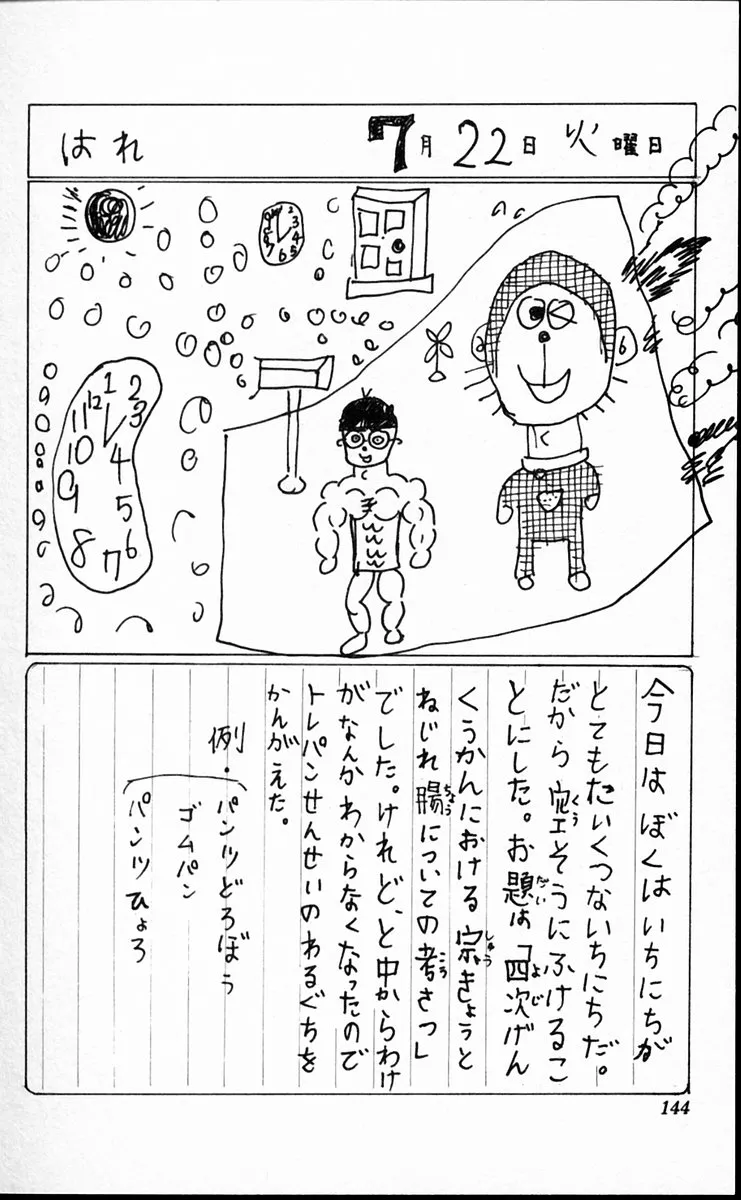 はれ
7月22日火曜日
12
3
4
5
6
7
8
9
1
2
3
4
5
6
7
8
9
10
11
12
今日はぼくはいちにちが
とてもたいくつないちにちだ。
だから空そうにふけるこ
とにした。お題は「四次げん
くうかんにおける宗きょうと
ねじれ腸についての考さつ」
でした。けれど、と中からわけ
がなんかわからなくなったので
トレパンせんせいのわるぐちを
かんがえた。
例・パンツどろぼう
ゴムパン
パンツひょろ
144